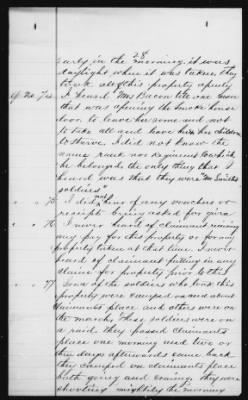 28
early in the morning it was
daylight when it was taken. They
took all this property openly
Q. No. 74. I heard Mrs Bacon tell one man
that was opening the smoke house
door to leave her some and not
to take all and leave her & her children
to starve. I did not know the
name rank nor regiment
he belonged the only thing that I
heard was that they were "Mr Smiths
soldiers"
" " 75 I did not hear of any vouchers or
receipts being asked for or given
" " 76 I never heard of claimant receiving
any pay for this property or for any
property taken at that time. I never
heard of claimant putting in any
claim for property prior to this
" " 77 Some of the soldiers who took this
property were camped on and about
claimants place and others were on
the march. These soldiers were on
a raid. They passed claimants
place one morning and two or
three days afterwards came back
they camped on claimants place
both going and coming, they were
shooting mightily the morning